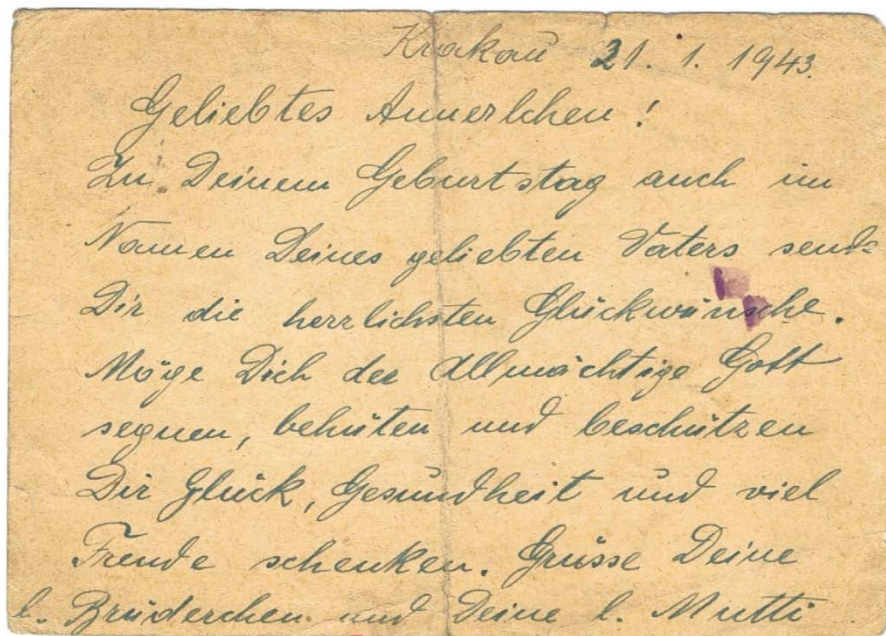 Krakau 21. 1. 1943.
Geliebtes Annerlchen!
Zu Deinem Geburtstag auch im
Namen Deines geliebten Vaters send=
Dir die herzlichsten Glückwünsche.
Möge Dich der Allmächtige Gott
segnen, behüten und beschützen
Dir Glück, Gesundheit und viel
Freude schenken. Grüsse Deine
l. Brüderchen und Deine l. Mutti